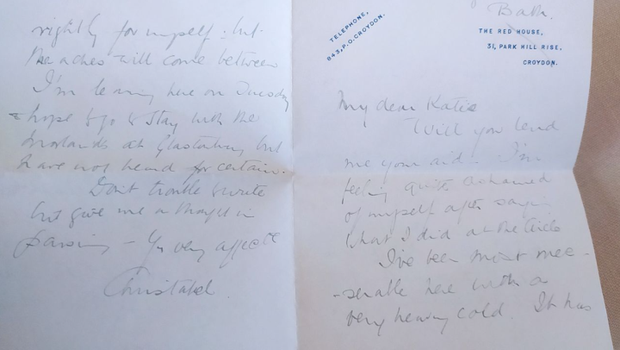 Bath.
TELEPHONE,
943, P.O. CROYDON.
THE RED HOUSE,
51, PARK HILL RISE,
CROYDON.
My dear Katie
Will you lend
me your aid. I'm
feeling quite ashamed
of myself after saying
what I did at the
I've been most mee-
-serable here with a
very heavy cold. It has
rightly for myself: but
will come between
I'm leaving here on Tuesday
& hope to go & stay with the
at Glastonbury but
have not heard for certain.
Don't trouble to write
but give me a thought in
passing - Yr very affecte
Christabel.